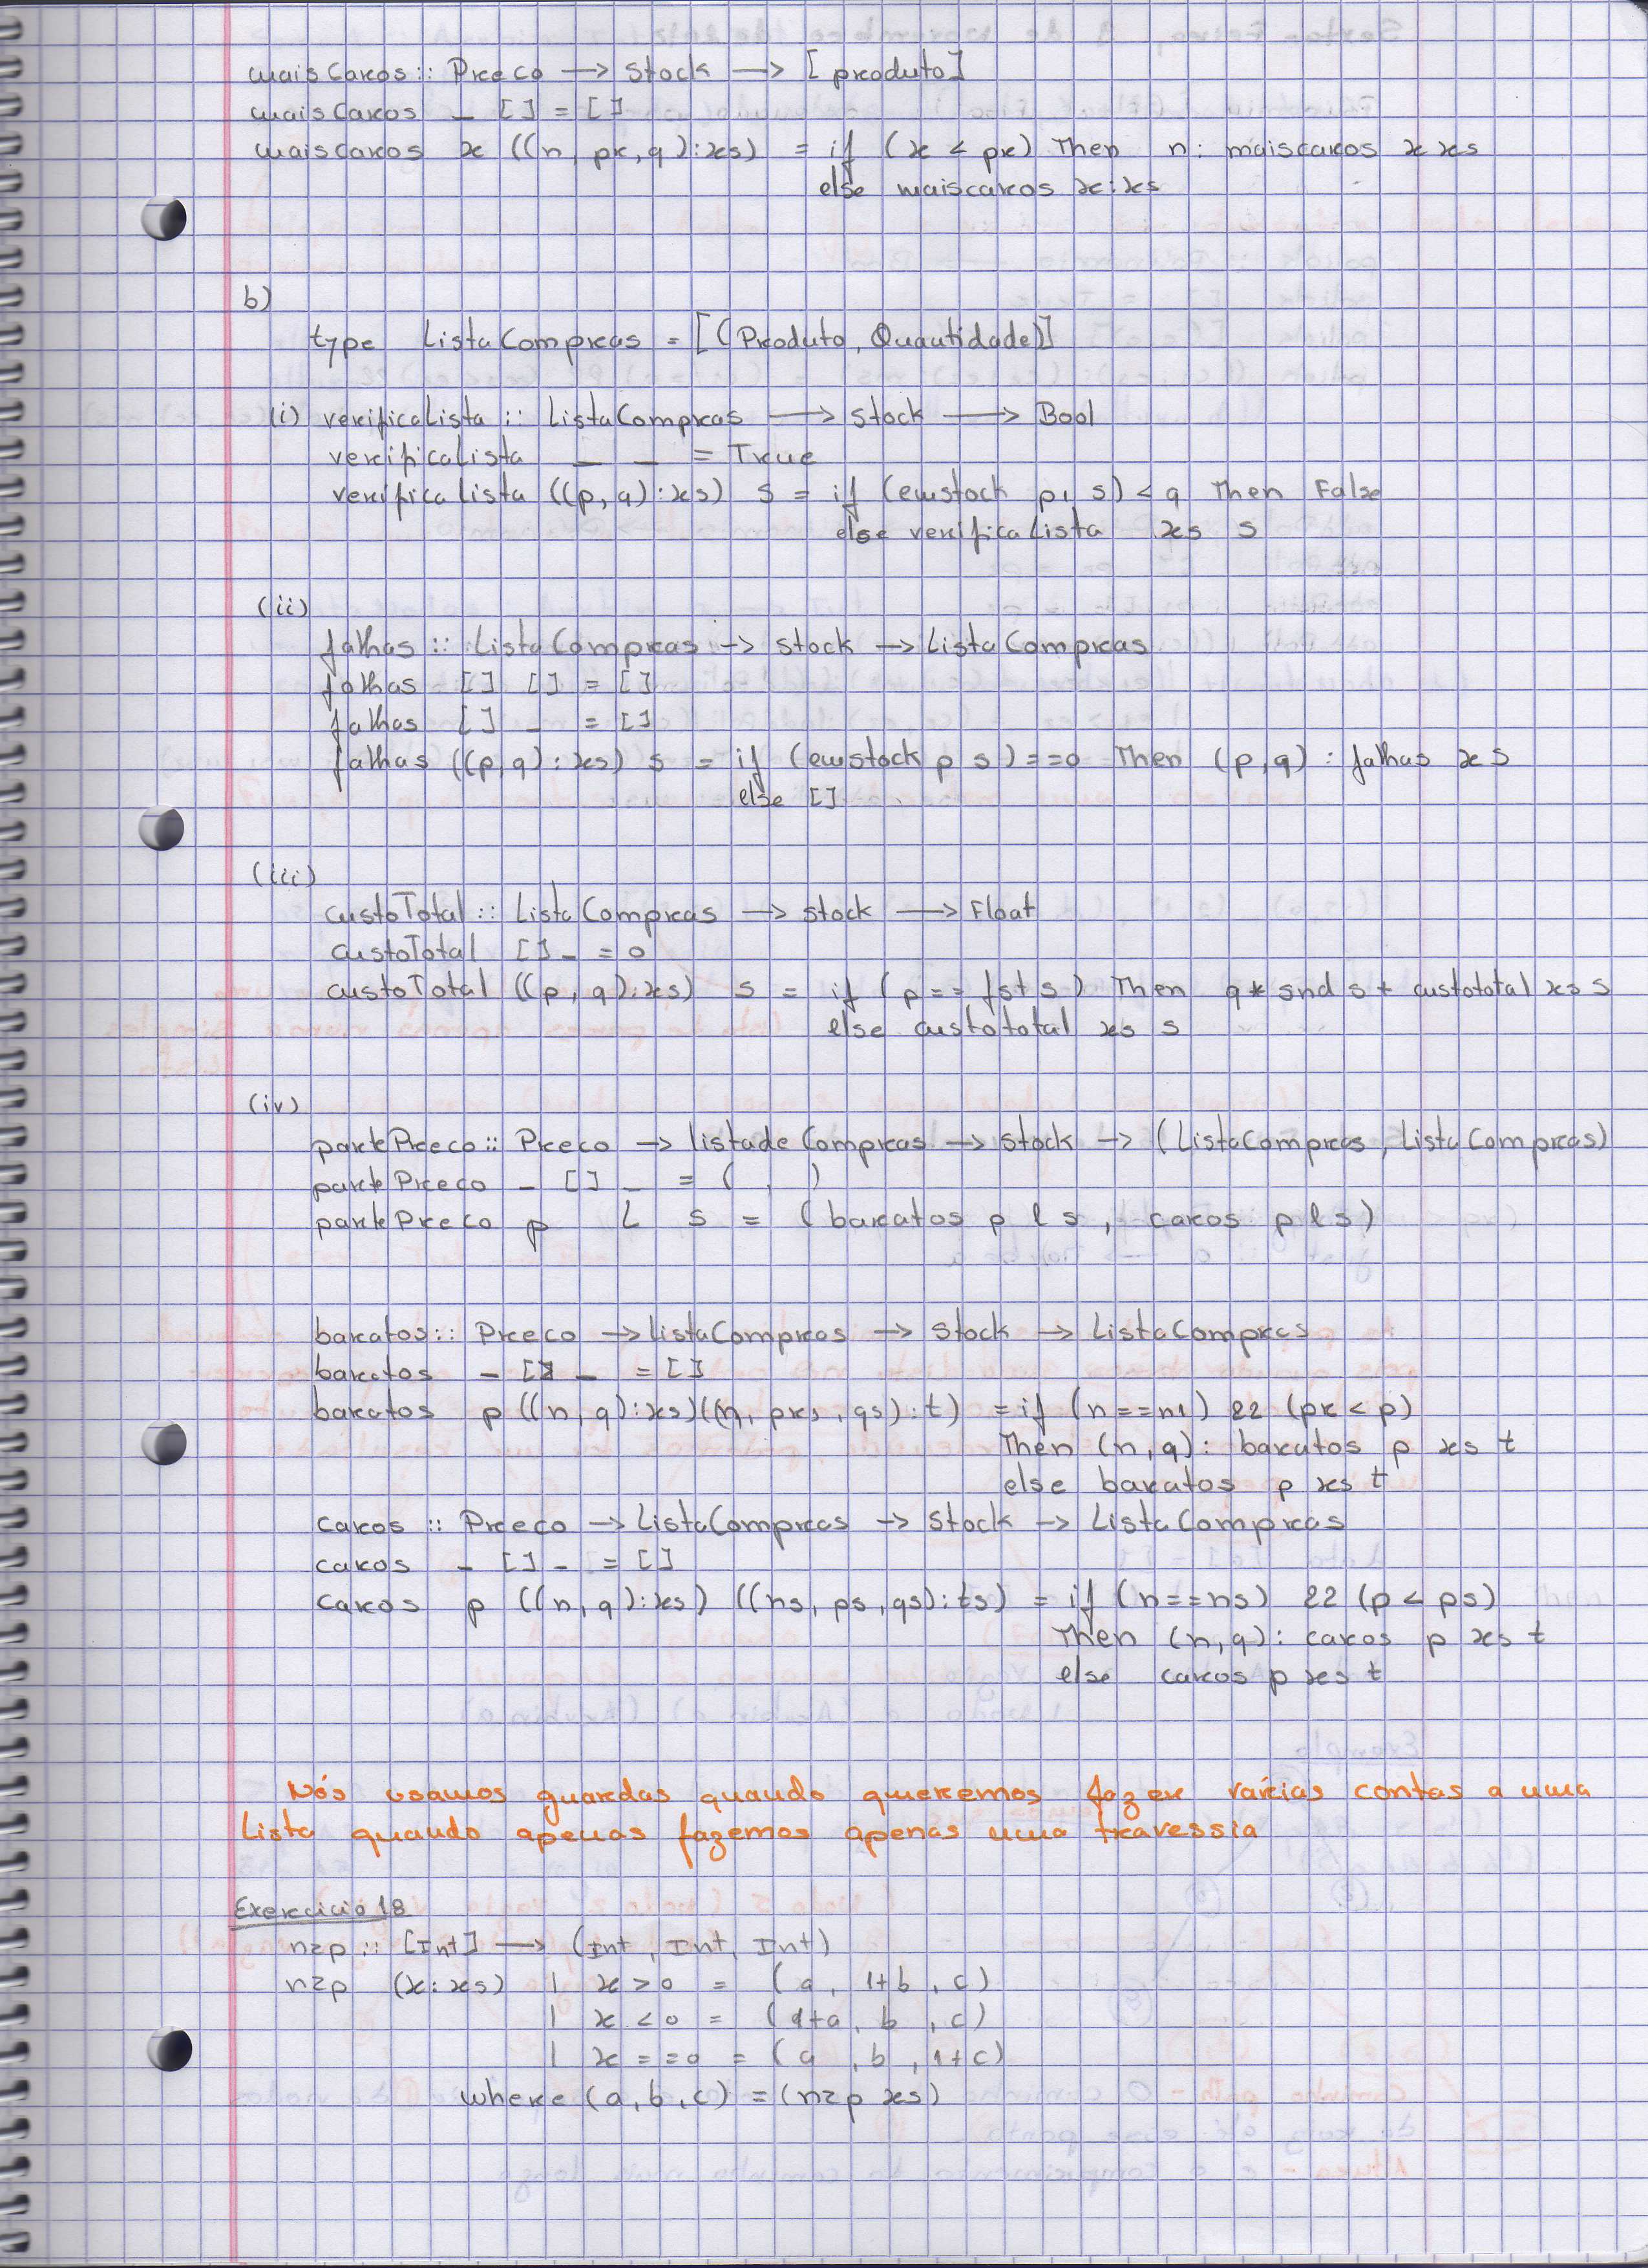 maisCaros :: Preco → Stock → [produto]
maisCaros _ [] = []
maiscaros x ((n, pr, q):xs) = if (x < pr) Then n: maiscaros x xs
else maiscaros x:xs
b)
type ListaCompras = [(Produto, Quantidade)]
(i) verificaLista :: ListaCompras → Stock → Bool
verificaLista _ _ = True
verificaLista ((p, q):xs) s = if (emstock p, s) < q Then False
else verificaLista xs s
(ii)
falhas :: ListaCompras → Stock → ListaCompras
falhas [] [] = []
falhas [] _ = []
falhas ((p,q):xs) s = if (emstock p s) ==0 Then (p,q) : falhas x s
else []
(iii)
custoTotal :: ListaCompras → Stock → Float
custoTotal [] _ = 0
custoTotal ((p, q):xs) s = if (p == fst s) Then q * snd s + custototal xs s
else custototal xs s
(iv)
partePreco :: Preco → listade Compras → Stock → (ListaCompras, ListaCompras)
partePreco _ [] _ = ( , )
partePreco p L s = (baratos p l s, caros p l s)
baratos :: Preco → ListaCompras → Stock → ListaCompras
baratos _ [] _ = []
baratos p ((n, q):xs)((n, prs, qs):t) = if (n==n1) && (pr < p)
Then (n, q): baratos p xs t
else baratos p xs t
caros :: Preco → ListaCompras → Stock → ListaCompras
caros _ [] _ = []
caros p ((n, q):xs) ((ns, ps, qs):ts) = if (n==ns) && (p < ps)
Then (n, q): caros p xs t
else caros p xs t
Nós usamos guardas quando queremos fazer várias contas a uma
Lista quando apenas fazemos apenas uma travessia
Exercicio 18
nzp :: [Int] → (Int, Int, Int)
nzp (x:xs) | x > 0 = (a, 1+b, c)
| x < 0 = (1+a, b, c)
| x == 0 = (a, b, 1+c)
where (a, b, c) = (nzp xs)